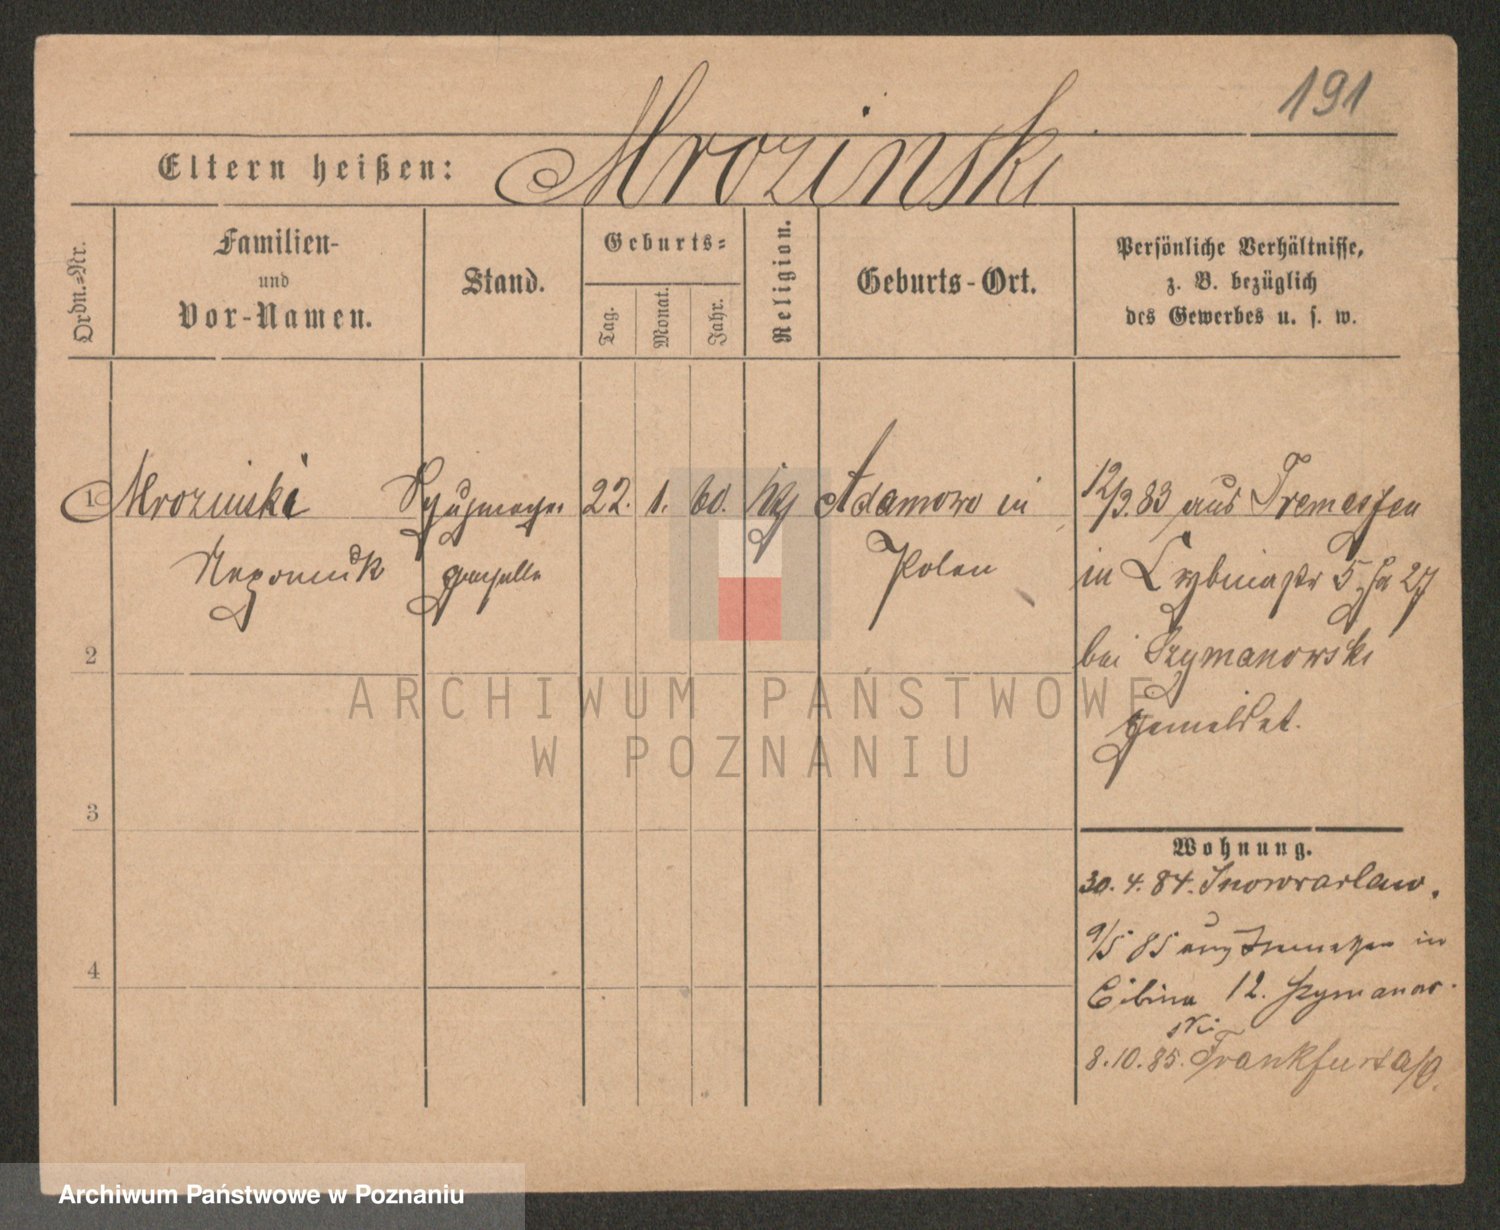 191
Eltern heißen: Mrozinski
Ordn.=Nr.
Familien-
und
Vor-Namen.
Stand.
Geburts=
Tag.
Monat.
Jahr.
Religion.
Geburts-Ort.
Persönliche Verhältnisse,
z. B. bezüglich
des Gewerbes u. s. w.
1 Mrozinski Schuhmacher 22. 1. 60. Adamowo in 12/3. 83 aus Tremessen
Nepomuck geselle Polen in 5
2 bei Szymanowski
gemeldet.
3
Wohnung.
30. 4. 84. Inowrazlaw.
9/5 85 aus Tremessen in
4 Cibina 12. Szymanow-
ski
8. 10. 85. Frankfurt a/O.
ARCHIWUM PAŃSTWOWE
W POZNANIU
Archiwum Państwowe w Poznaniu